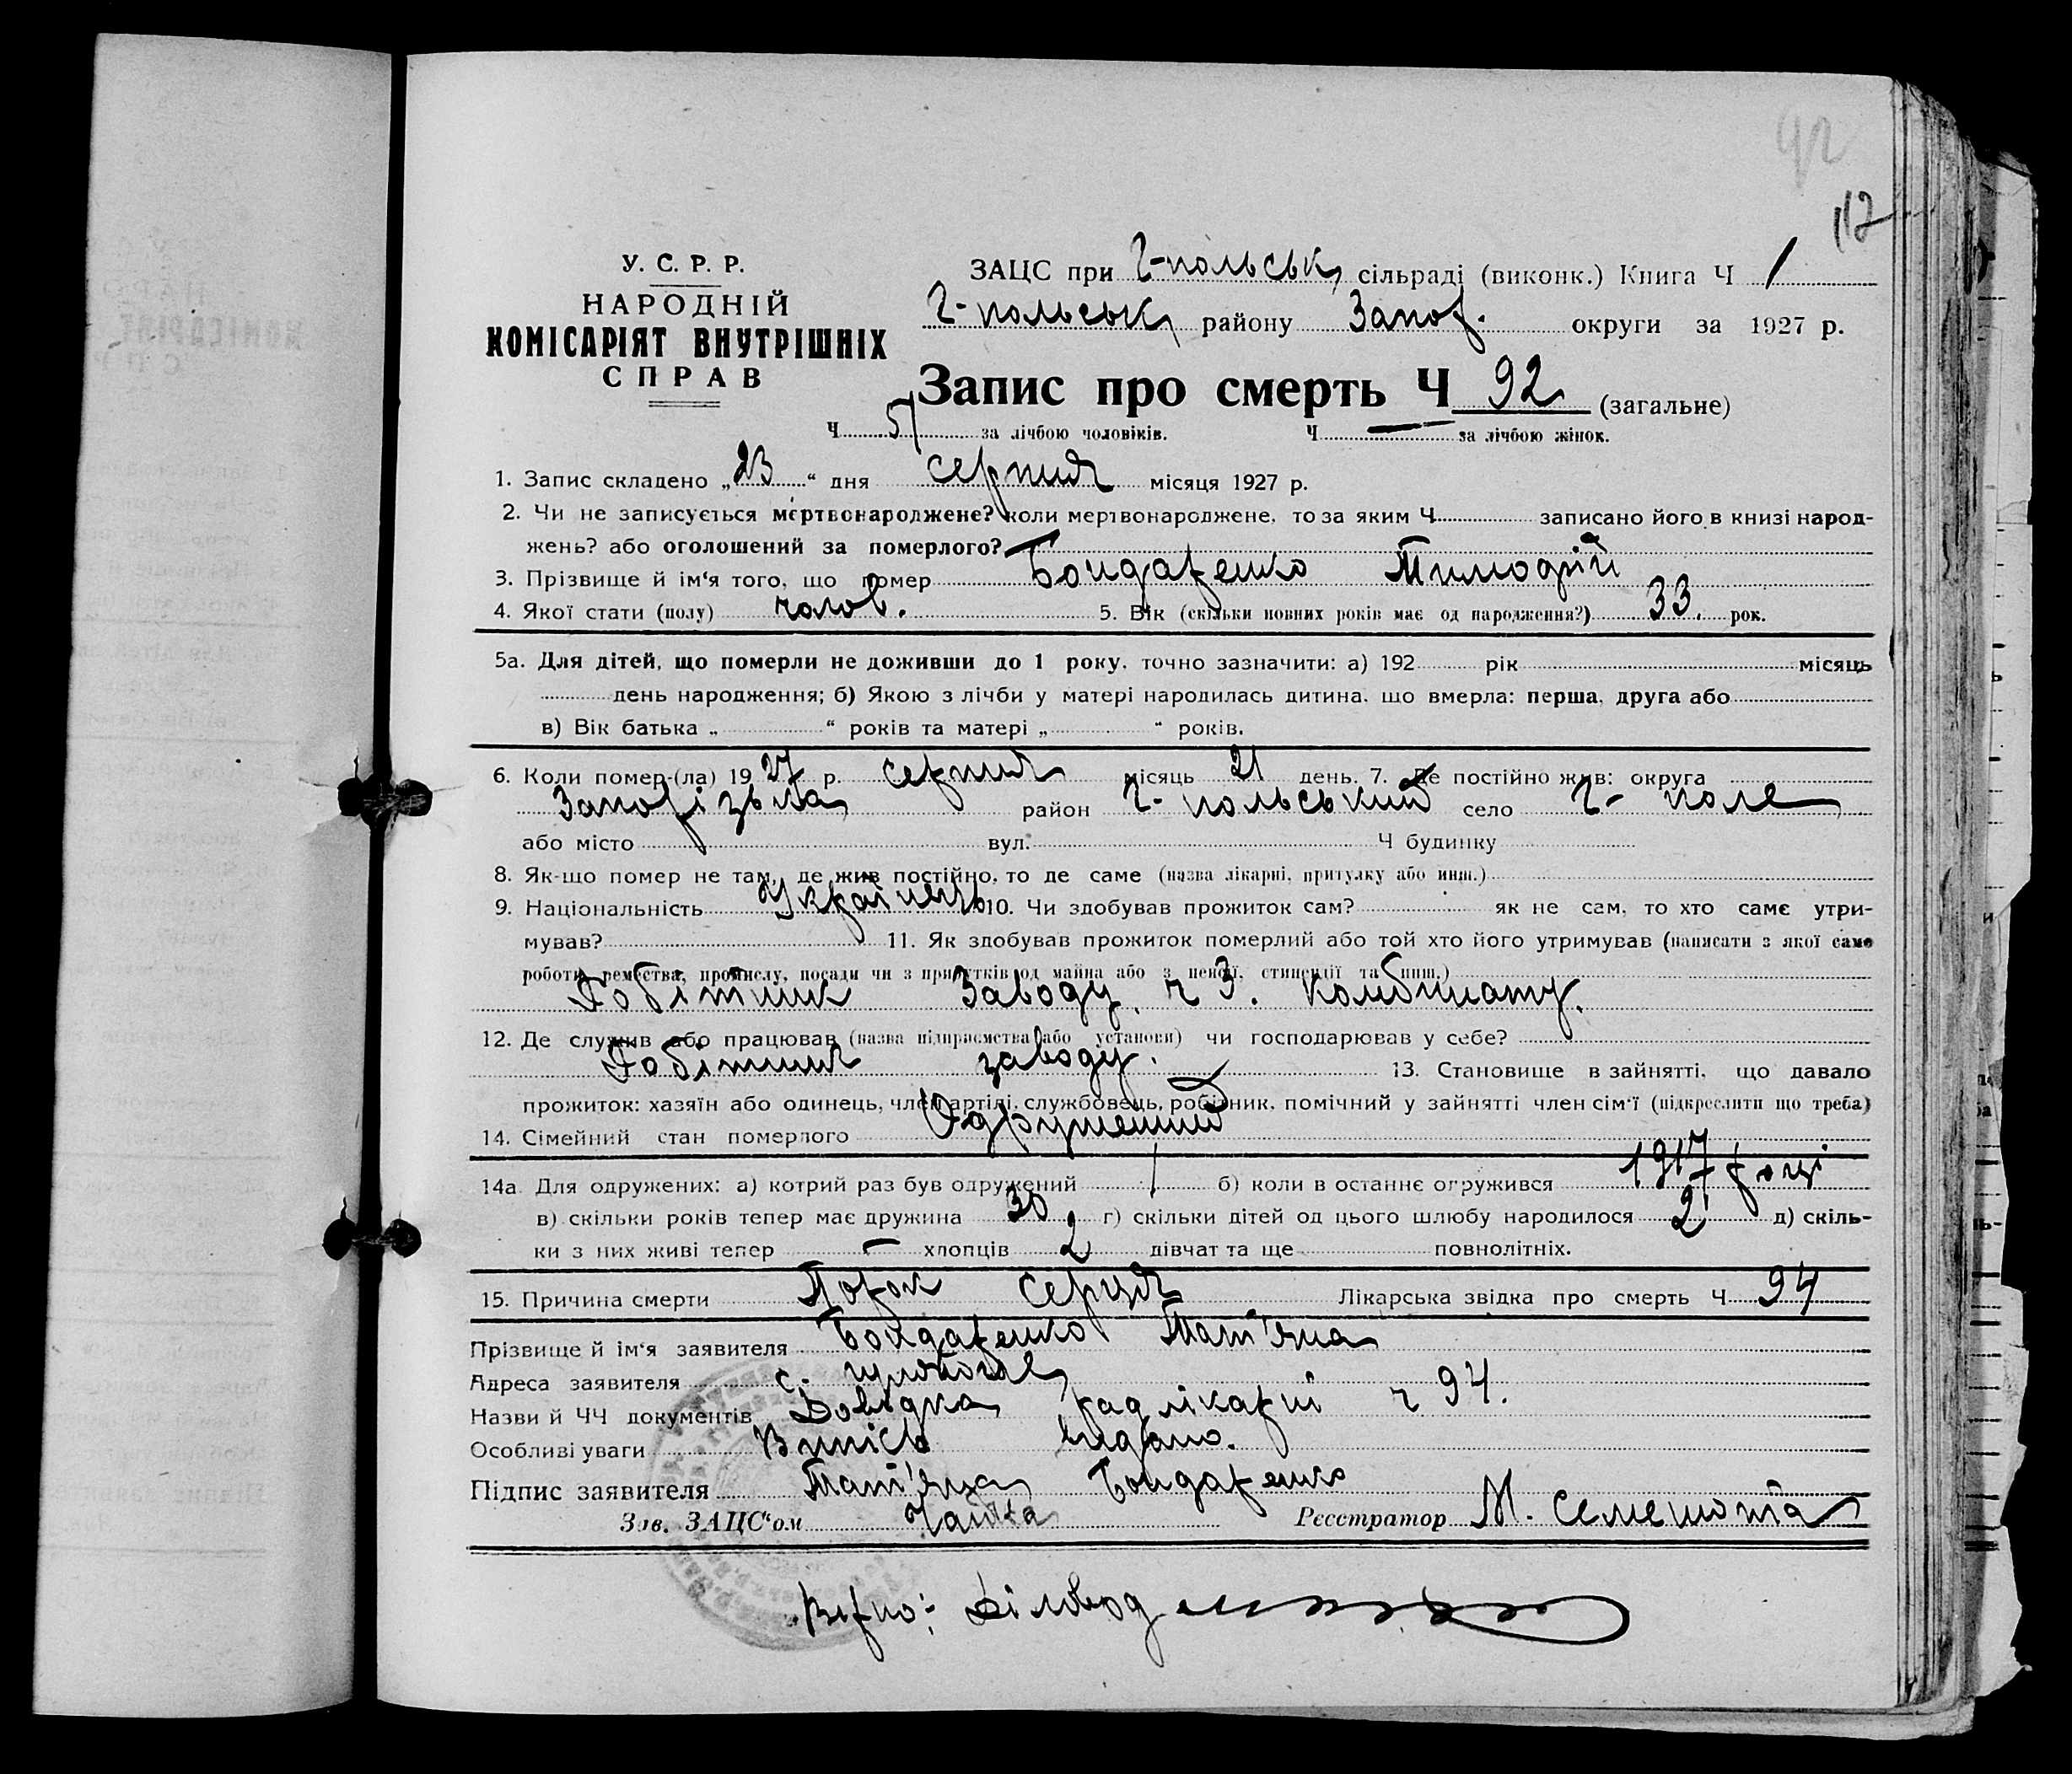 92
112
У. С. Р. Р.
НАРОДНІЙ
КОМІСАРІЯТ ВНУТРІШНІХ
СПРАВ
ЗАЦС при Г-польськ, сільраді (виконк.) Книга Ч 1
Г-польськ, району Запор. округи за 1927 р.
Запис про смерть Ч 92 (загальне)
Ч 57 за лічбою чоловіків. Ч — за лічбою жінок.
1. Запис складено „23“ дня серпня місяця 1927 р.
2. Чи не записується мертвонароджене? коли мертвонароджене, то за яким Ч записано його в книзі народ-
жень? або оголошений за померлого? —
3. Прізвище й ім'я того, що помер Бондаренко Тимофій
4. Якої стати (полу) чолов. 5. Вік (скільки повних років має од народження?) 33. рок.
5а. Для дітей, що померли не доживши до 1 року, точно зазначити: а) 192 рік місяць
день народження; б) Якою з лічби у матері народилась дитина, що вмерла: перша, друга або
в) Вік батька „ “ років та матері „ “ років.
6. Коли помер-(ла) 1927 р. серпня місяць 21 день. 7. Де постійно жив: округа
Запорізька район Г-польський село Г-поле
або місто вул. Ч будинку
8. Як-що помер не там, де жив постійно, то де саме (назва лікарні, притулку або инш.)
9. Національність Українець 10. Чи здобував прожиток сам? як не сам, то хто саме утри-
мував? 11. Як здобував прожиток померлий або той хто його утримував (написати з якої саме
роботи, ремества, промислу, посади чи з прибутків од майна або з пенсії, стипендії та инш.)
Робітник Заводу ч 3. Комбінату.
12. Де служив або працював (назва підприємства або установи) чи господарював у себе?
Робітник заводу. 13. Становище в зайнятті, що давало
прожиток: хазяїн або одинець, член артілі, службовець, робітник, помічний у зайнятті член сім'ї (підкреслити що треба)
14. Сімейний стан померлого Одружений
14а. Для одружених: а) котрий раз був одружений 1 б) коли в останнє огружився 1917 році
в) скільки років тепер має дружина 30 г) скільки дітей од цього шлюбу народилося 2 д) скіль-
ки з них живі тепер — хлопців 2 дівчат та ще повнолітніх.
15. Причина смерти Порок серця Лікарська звідка про смерть Ч 94
Прізвище й ім'я заявителя Бондаренко Тат'яна
Адреса заявителя с. Гуляйполе
Назви й ЧЧ документів Довідка радлікарні ч 94.
Особливі уваги Випісь видано.
Підпис заявителя Тат'яна Бондаренко
Зав. ЗАЦС'ом Чайка Реєстратор М. Семенюта
Вірно: Діловод